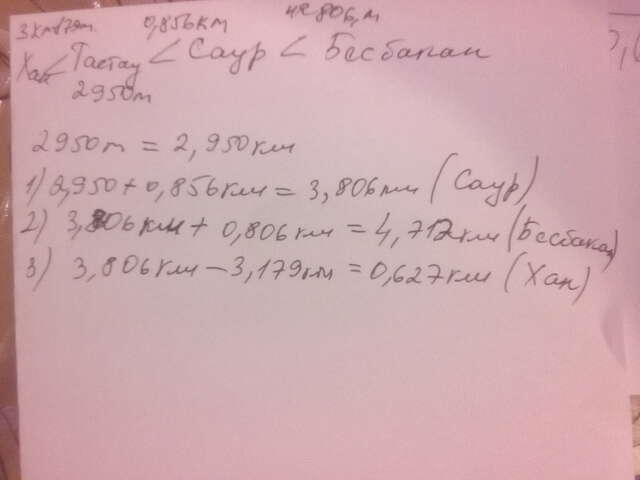 3км179m. 0,856км 806,м
Хан< Тастау < Саур < Бесбакан
2950m
2950m = 2,950км
1) 2,950 + 0,856км = 3,806км (Саур)
2) 3,806км + 0,806км = 4,712км (Бесбакан)
3) 3,806км – 3,179км = 0,627км (Хан)